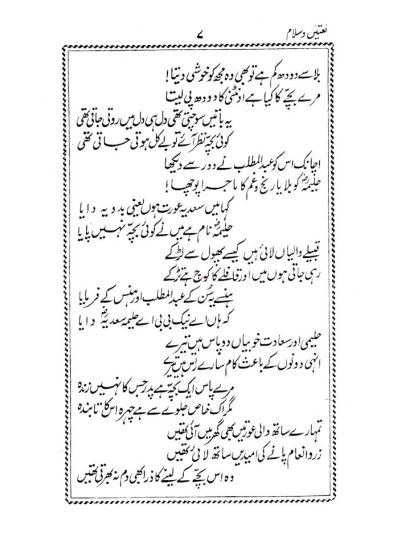 نعتیں و سلام
۷
بلا سے دودھ کم ہے تو بھی وہ مجھ کو خوشی دیتا!
مرے بچے کا کیا ہے اونٹنی کا دودھ پی لیتا
یہ باتیں سوچتی تھی دل ہی دل میں روتی جاتی تھی
کوئی بچہ نظر آئے تو بے کل ہوتی جاتی تھی
اچانک اس کو عبدالمطلب نے دور سے دیکھا
حلیمہؓ کو بلایا رنج و غم کا ماجرا پوچھا!
کہا میں سعدیہ عورت ہوں یعنی بدویہ دایا
حلیمہؓ نام ہے میں نے کوئی بچہ نہیں پایا
قبیلے والیاں لائی ہیں کیسے پھول سے لڑکے
رہی جاتی ہوں میں اور قافلے کا کوچ ہے تڑکے
ہنسے یہ سن کے عبدالمطلب اور ہنس کے فرمایا
کہ ہاں اے نیک بی بی اے حلیمہ سعدیہؓ دایا
حلیمی اور سعادت خوبیاں دو پاس ہیں تیرے
انہی دونوں کے باعث کام سارے راس ہیں تیرے
مرے پاس ایک بچہ ہے پدر جس کا نہیں زندہ
مگر اک خاص جلوے سے ہے چہرہ اس کا تابندہ
تمہارے ساتھ والی عورتیں بھی گھر میں آئی تھیں
زر و انعام پانے کی امیدیں ساتھ لائی تھیں
وہ اس بچے کے لینے کا ذرا بھی دم نہ بھرتی تھیں